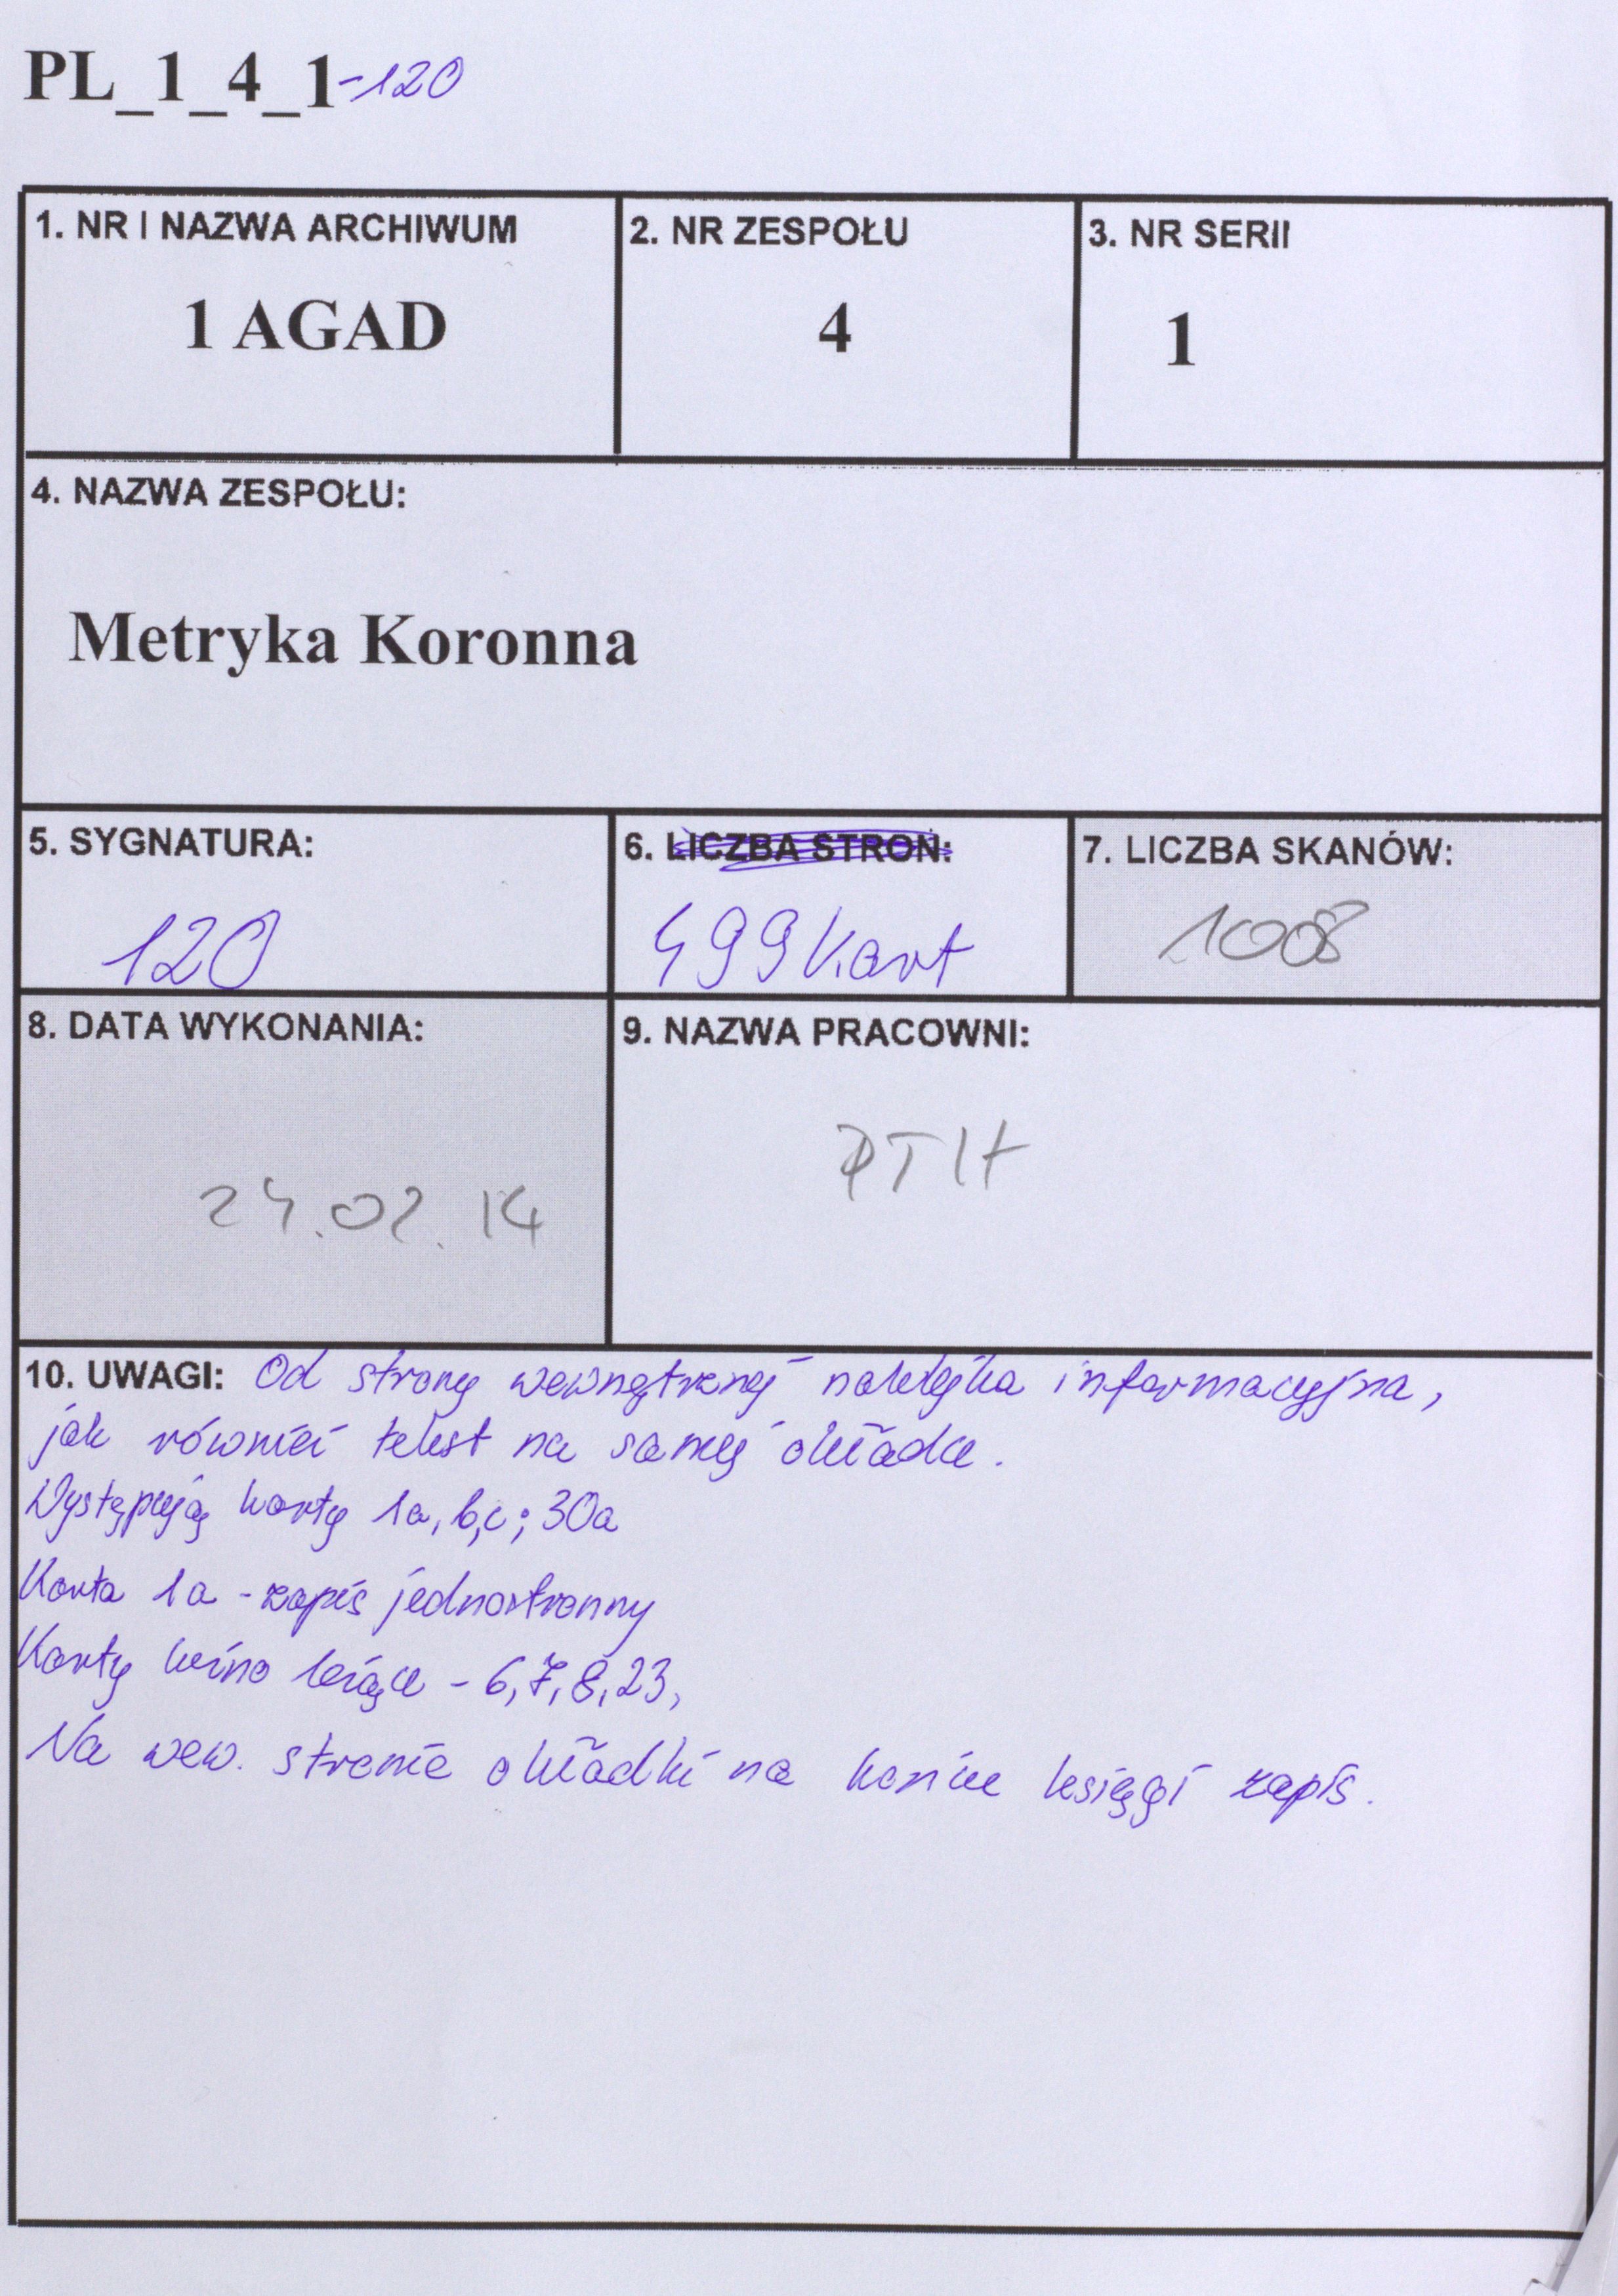 PL_1_4_1-120
1. NR I NAZWA ARCHIWUM
1 AGAD
2. NR ZESPOŁU
4
3. NR SERII
1
4. NAZWA ZESPOŁU:
Metryka Koronna
5. SYGNATURA:
120
6. LICZBA STRON:
499 kart
7. LICZBA SKANÓW:
1008
8. DATA WYKONANIA:
24.02.14
9. NAZWA PRACOWNI:
PTH
10. UWAGI: Od strony wewnętrznej naklejka informacyjna,
jak również tekst na samej okładce.
Występują karty 1a, b, c; 30a
Karta 1a - zapis jednostronny
Karty luźno leżące - 6, 7, 8, 23,
Na wew. stronie okładki na końcu księgi zapis.